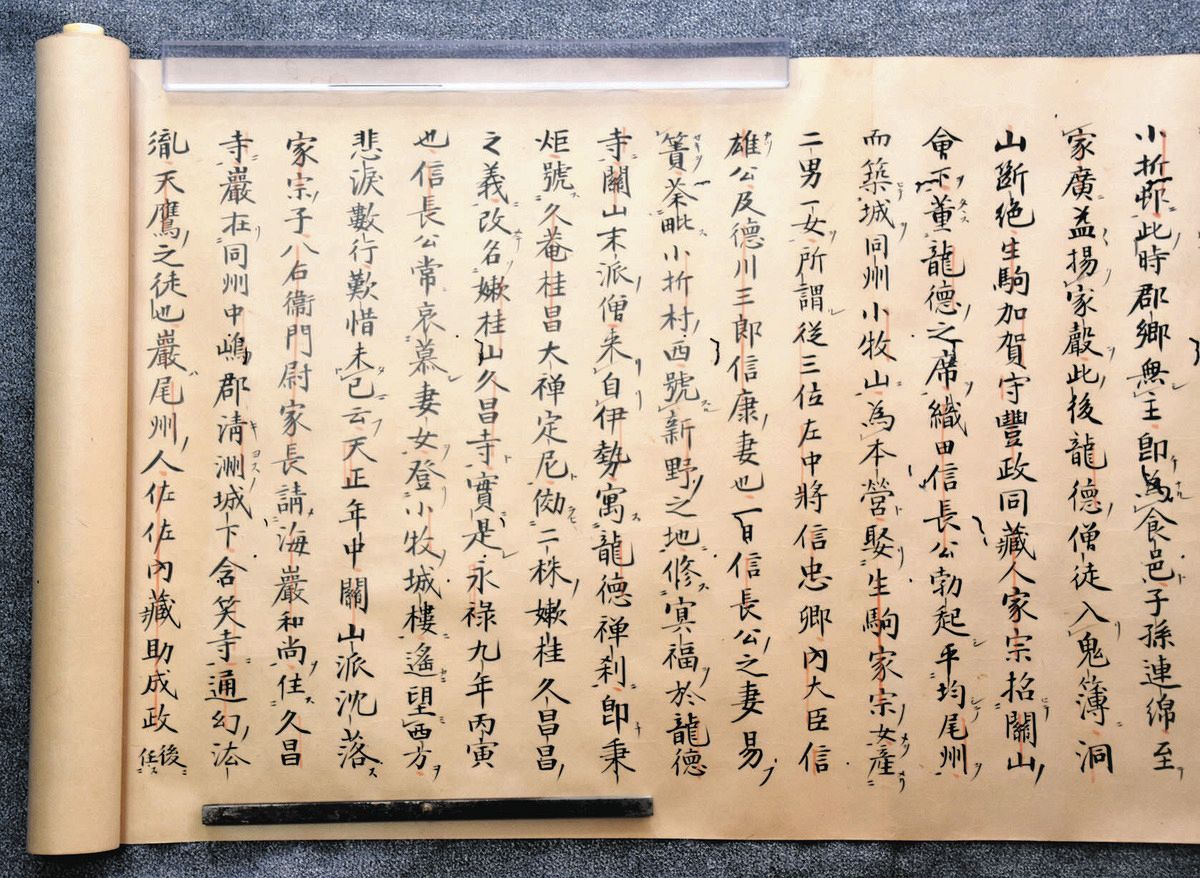 小折邨此時郡鄉無主卽為食邑子孫連綿至
家廣益揚家聲此後龍德僧徒入鬼簿洞
山斷絕生駒加賀守豐政同藏人家宗招關山
會下董龍德之席織田信長公勃起平均尾州
而築城同州小牧山為本營娶生駒家宗女產
二男一女所謂從三位左中將信忠卿內大臣信
雄公及德川三郎信康妻也一日信長公之妻易
簀荼毗小折村西號新野之地修冥福於龍德
寺關山末派僧来自伊勢寓龍德禅刹卽秉
炬號久菴桂昌大禅定尼傚二株嫩桂久昌昌
之義改名嫩桂山久昌寺實是永祿九年丙寅
也信長公常哀慕妻女登小牧城樓遙望西方
悲淚數行歎惜未已云天正年中關山派沈落
家宗子八右衞門尉家長請海巖和尚住久昌
寺巖在同州中嶋郡清洲城下含笑寺通幻泒
徹天鷹之徒也巖尾州人佐佐內藏助成政
後住